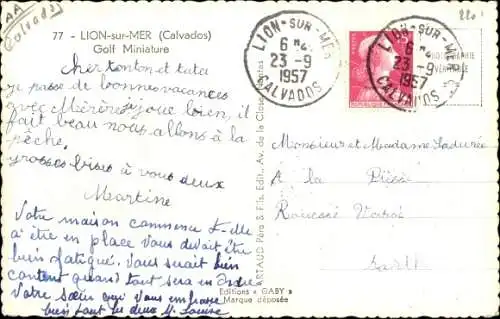 AA
Calvados
77 - LION-sur-MER (Calvados)
Golf Miniature
Cher tonton et tata
je passe de bonnes vacances
avec Mérène je joue bien, il
fait beau nous allons à la
pêche,
grosses bises à vous deux
Martine
Votre maison commence t-elle
a être en place vous devait être
bien fatigué. Vous serait bien
content quand tout sera en
Votre sœur qui vous embrasse
bien tout les deux M. Louise
ARTAUD Père & Fils, Edit., Av. de la Close, Nantes
Editions « GABY »
Marque déposée
LION-SUR-MER
6 H
23 - 9
1957
CALVADOS
LION-SUR-MER
6 H
23 - 9
1957
CALVADOS
PHOTOGRAPHIE
VERITABLE
220
Monsieur et Madame
A la
Sarthe